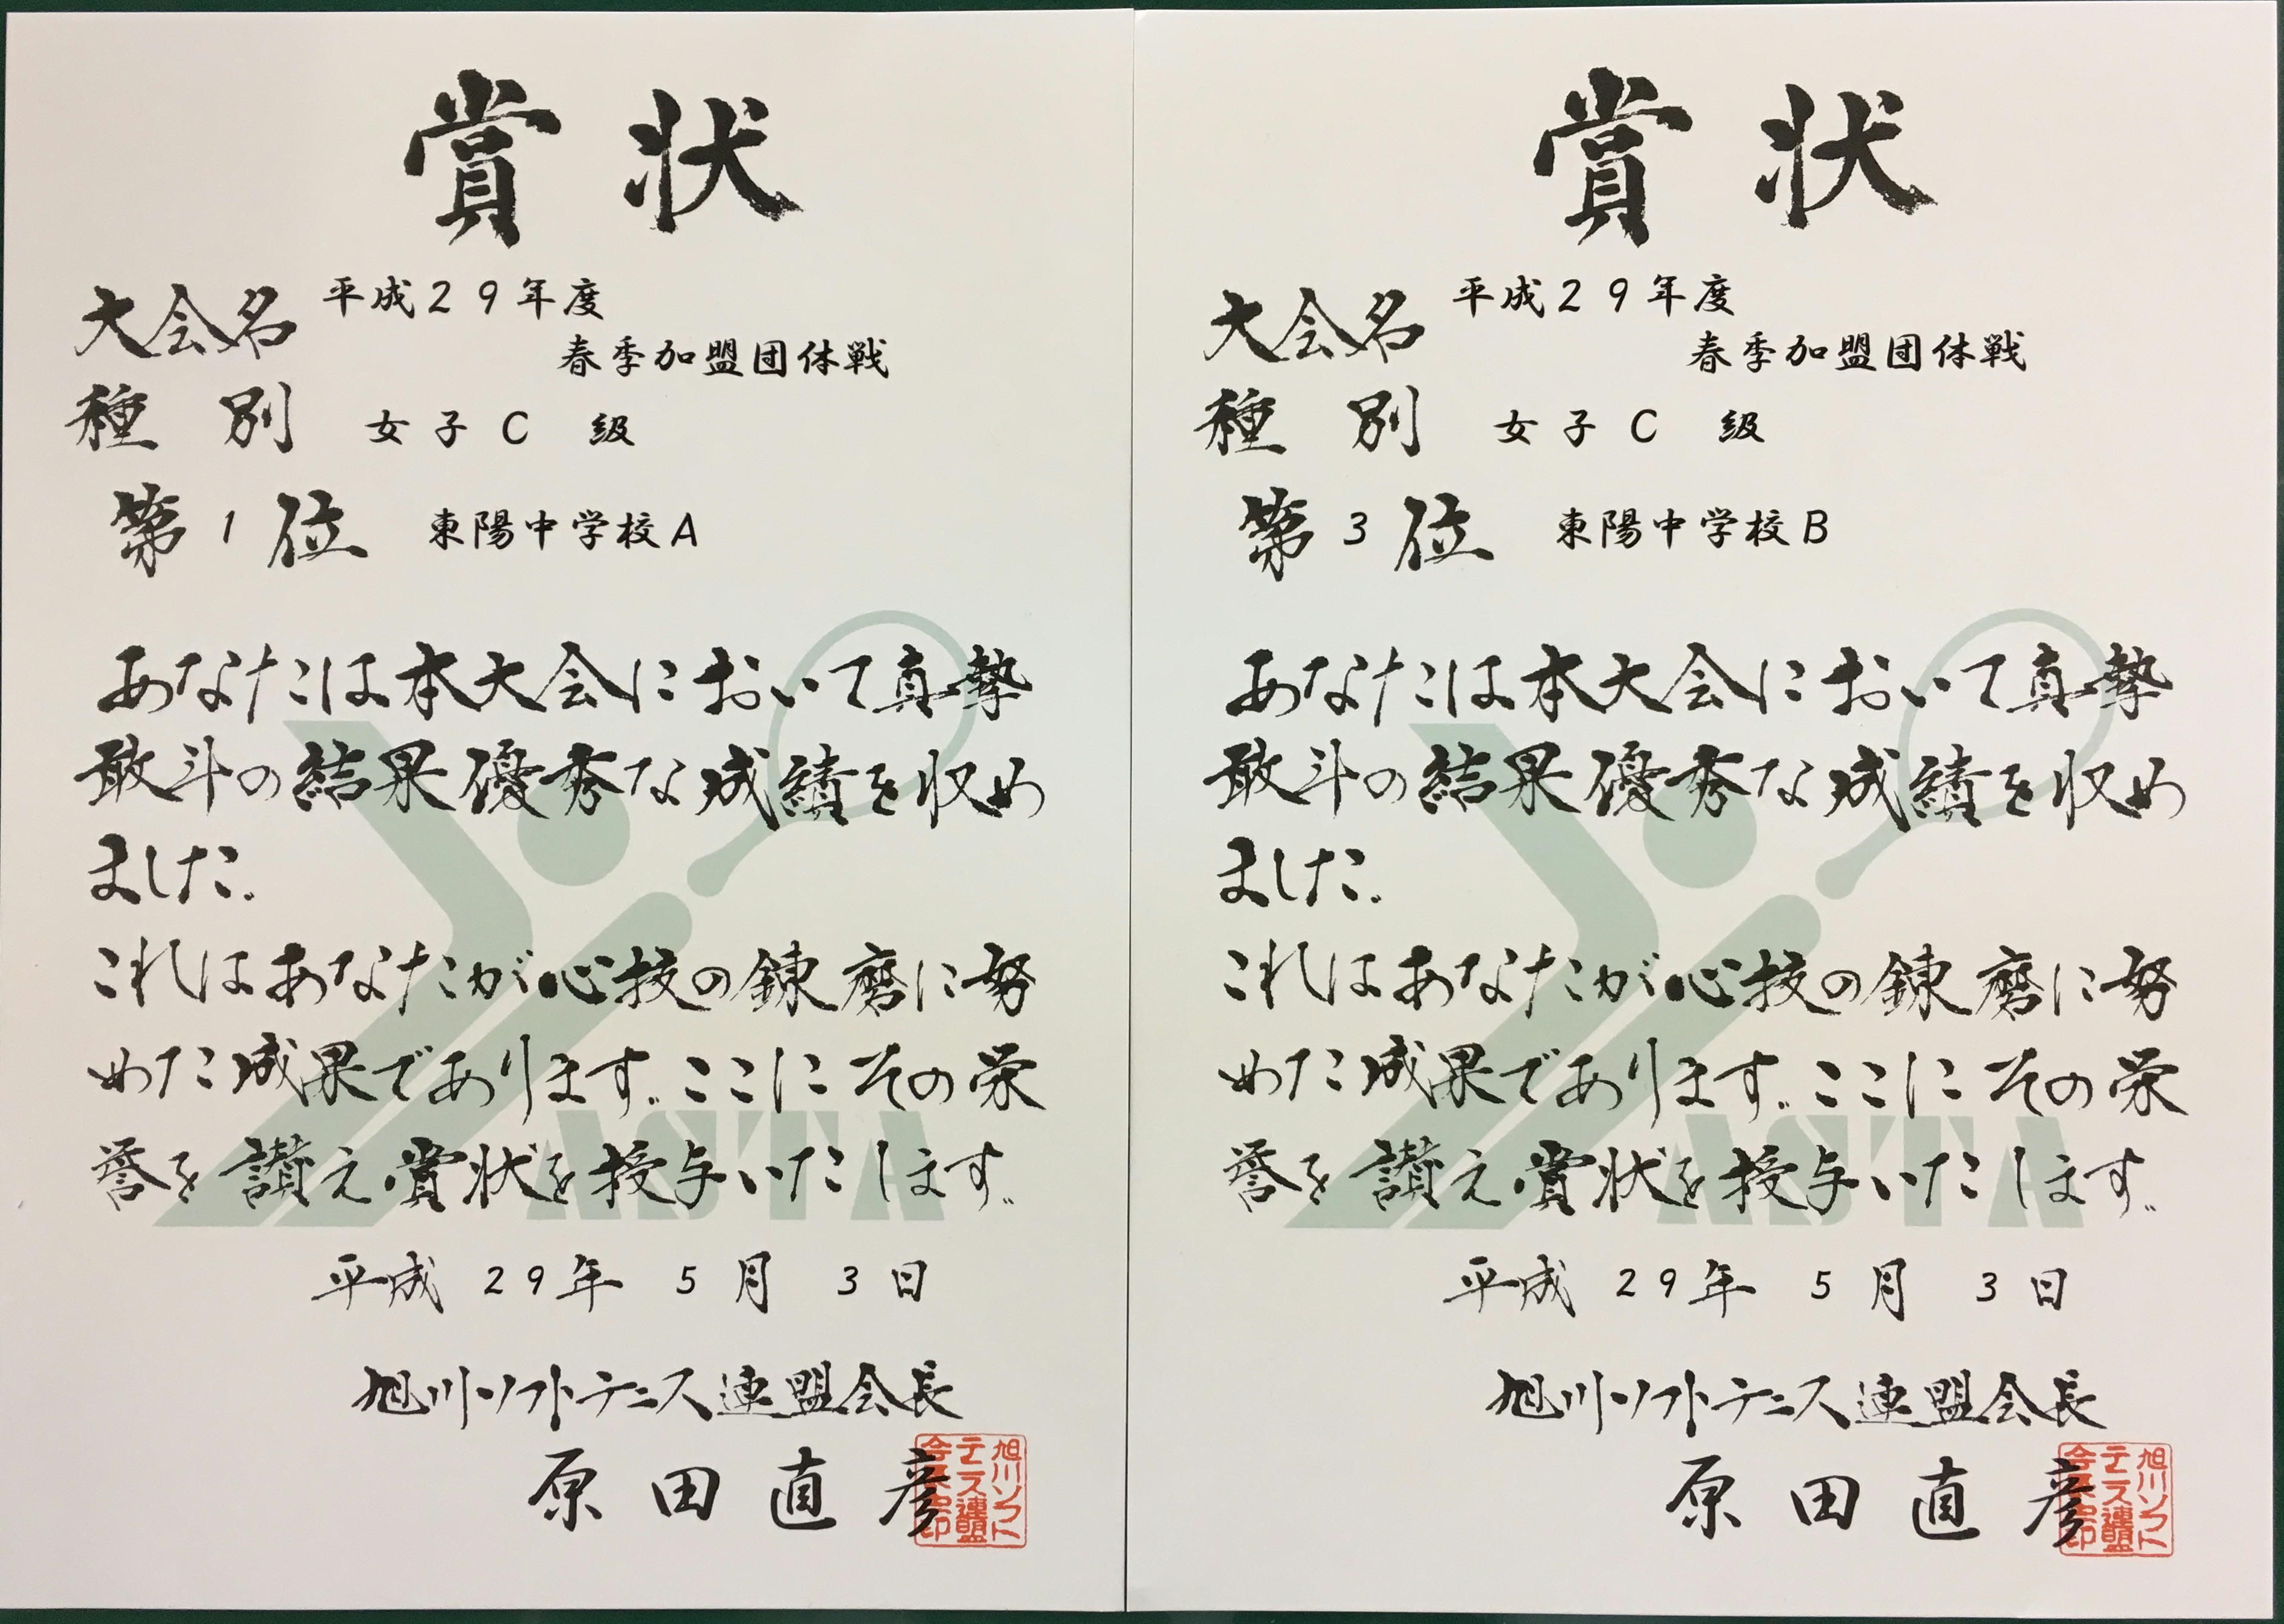 賞状
大会名 平成29年度
春季加盟団体戦
種別 女子C 級
第1位 東陽中学校A
あなたは本大会において真摯
敢斗の結果優秀な成績を収め
ました。
これはあなたが心技の錬磨に努
めた成果であります。ここにその栄
誉を讃え賞状を授与いたします。
ASTA
平成29年5月3日
旭川ソフトテニス連盟会長
原田直彦
旭川ソフト
テニス連盟
賞状
大会名 平成29年度
春季加盟団体戦
種別 女子C 級
第3位 東陽中学校B
あなたは本大会において真摯
敢斗の結果優秀な成績を収め
ました。
これはあなたが心技の錬磨に努
めた成果であります。ここにその栄
誉を讃え賞状を授与いたします。
ASTA
平成29年5月3日
旭川ソフトテニス連盟会長
原田直彦
旭川ソフト
テニス連盟